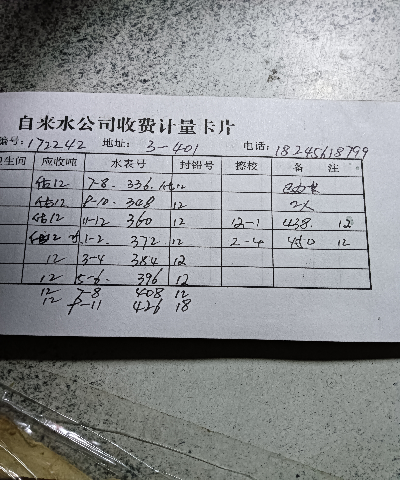 自来水公司收费计量卡片
编号:172242 地址: 3-401 电话:18245618799
卫生间 应收吨 水表号 封铅号 擦校 备注
估12 7-8. 336. 估12
估12 9-10. 348 12 2人
估12 11-12 360 12 12-1 438. 12
估12 1-2. 372 12 2-4 450 12
12 3-4 384 12
12 5-6. 396 12
12 7-8 408 12
12 9-11 426 18